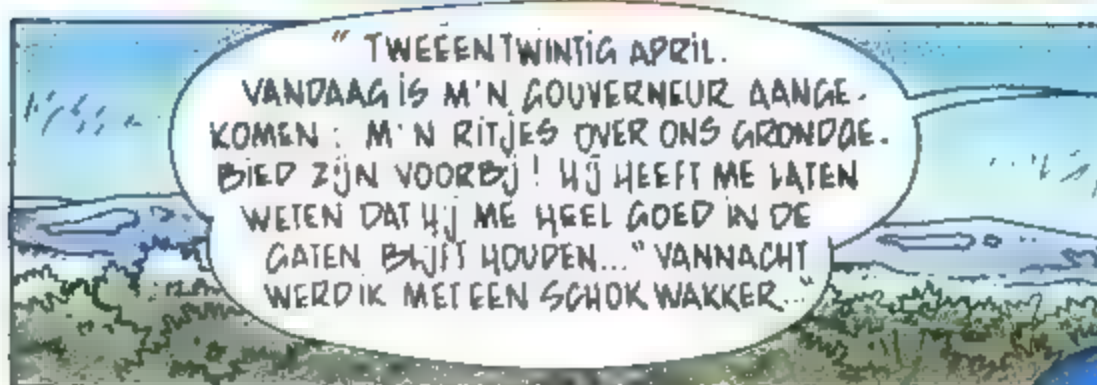 " TWEEENTWINTIG APRIL.
VANDAAG IS M'N GOUVERNEUR AANGE-
KOMEN : M'N RITJES OVER ONS GRONDGE-
BIED ZIJN VOORBIJ ! HIJ HEEFT ME LATEN
WETEN DAT HIJ ME HEEL GOED IN DE
GATEN BLIJFT HOUDEN..." VANNACHT
WERD IK MET EEN SCHOK WAKKER..."